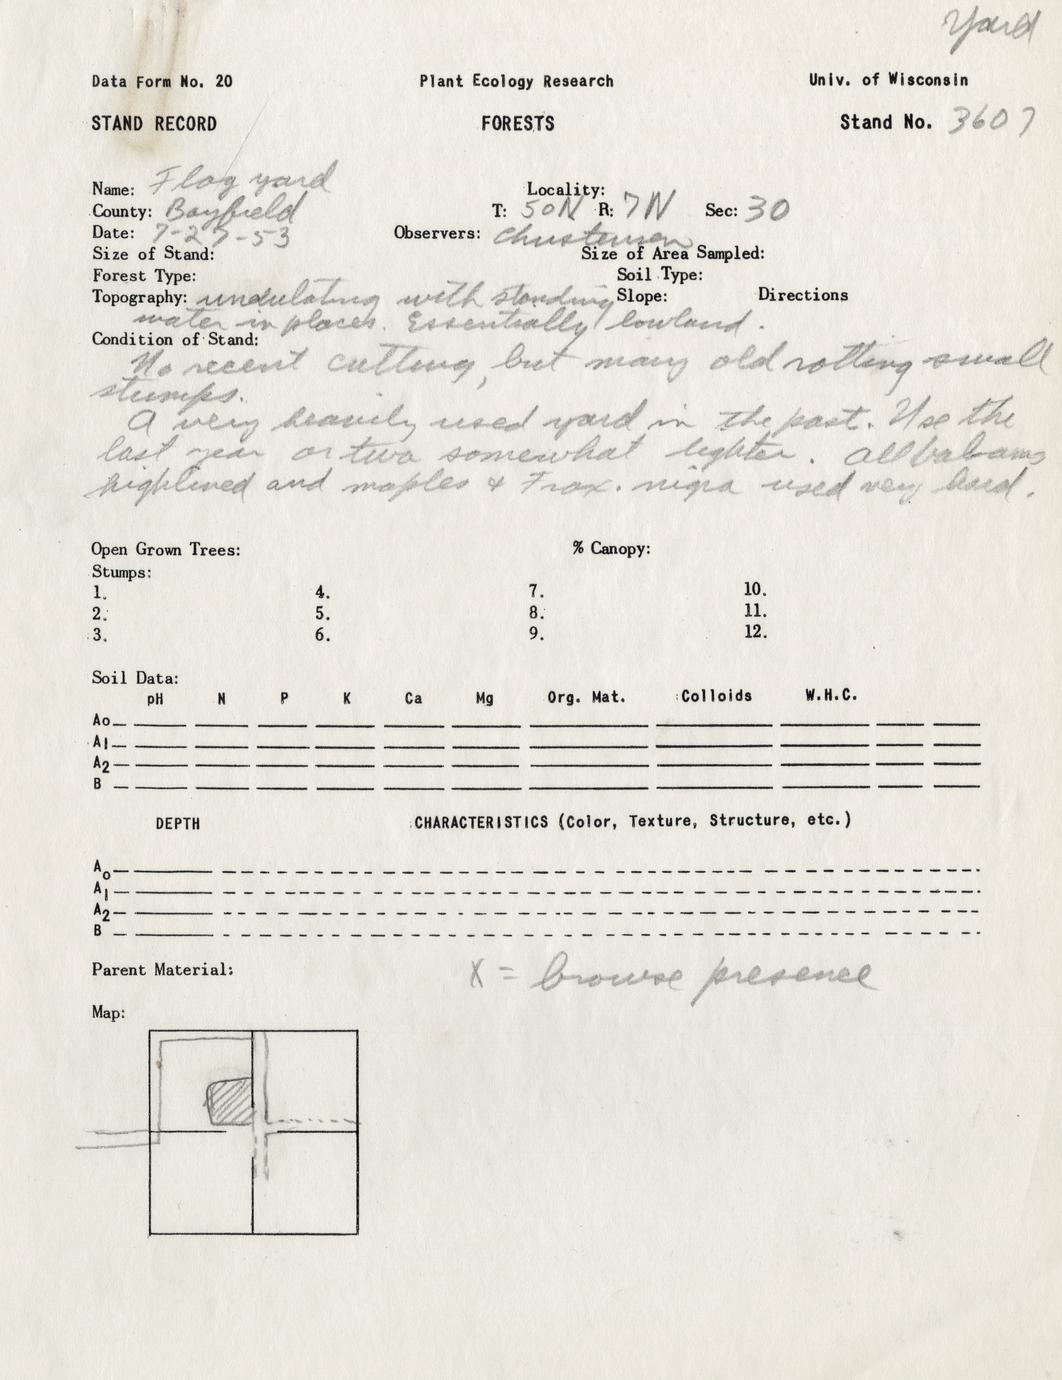 Yard
Data Form No. 20 Plant Ecology Research Univ. of Wisconsin
STAND RECORD FORESTS Stand No. 3607
Name: Flag yard Locality:
County: Bayfield T: 50N R: 7W Sec: 30
Date: 7-27-53 Observers: Christensen
Size of Stand: Size of Area Sampled:
Forest Type: Soil Type:
Topography: undulating with standing Slope: Directions
water in places. Essentially lowland.
Condition of Stand:
No recent cutting, but many old rotting small
stumps.
A very heavily used yard in the past. Use the
last year or two somewhat lighter. All balsams
highlined and maples & Frax. nigra used very hard.
Open Grown Trees: % Canopy:
Stumps:
1. 4. 7. 10.
2. 5. 8. 11.
3. 6. 9. 12.
Soil Data:
pH N P K Ca Mg Org. Mat. Colloids W.H.C.
Ao
A1
A2
B
DEPTH CHARACTERISTICS (Color, Texture, Structure, etc.)
Ao
A1
A2
B
Parent Material: X = browse presence
Map: